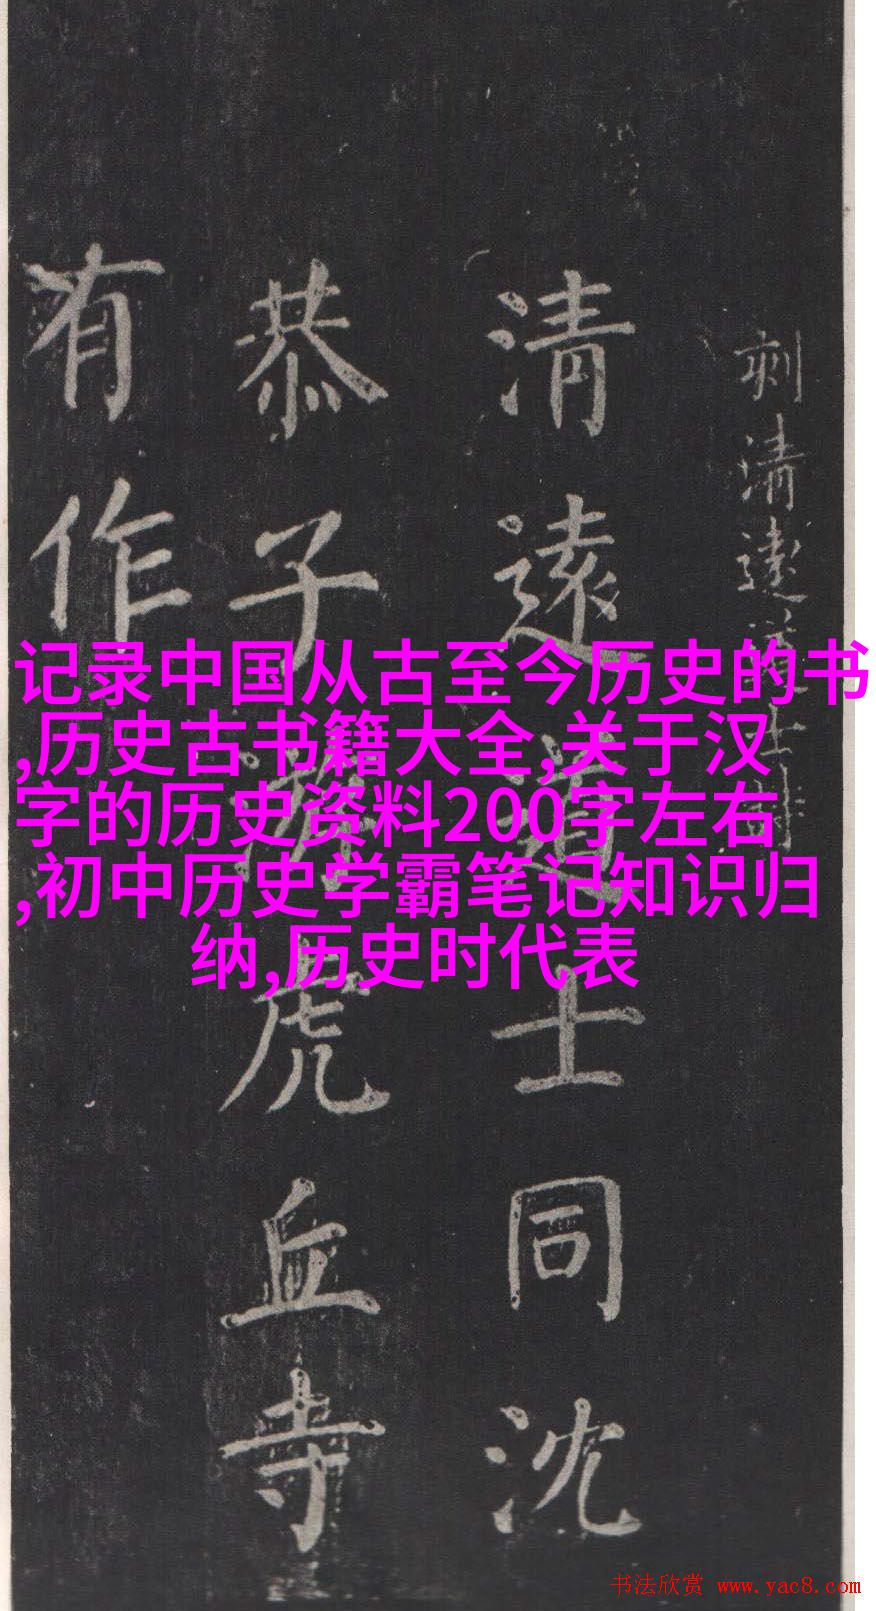 刻清遠道士詩
清遠道士同沈
恭子游虎丘寺
有作
记录中国从古至今历史的书
,历史古书籍大全,关于汉
字的历史资料200字左右
,初中历史学霸笔记知识归
纳,历史时代表
书法欣赏 www.yac8.com